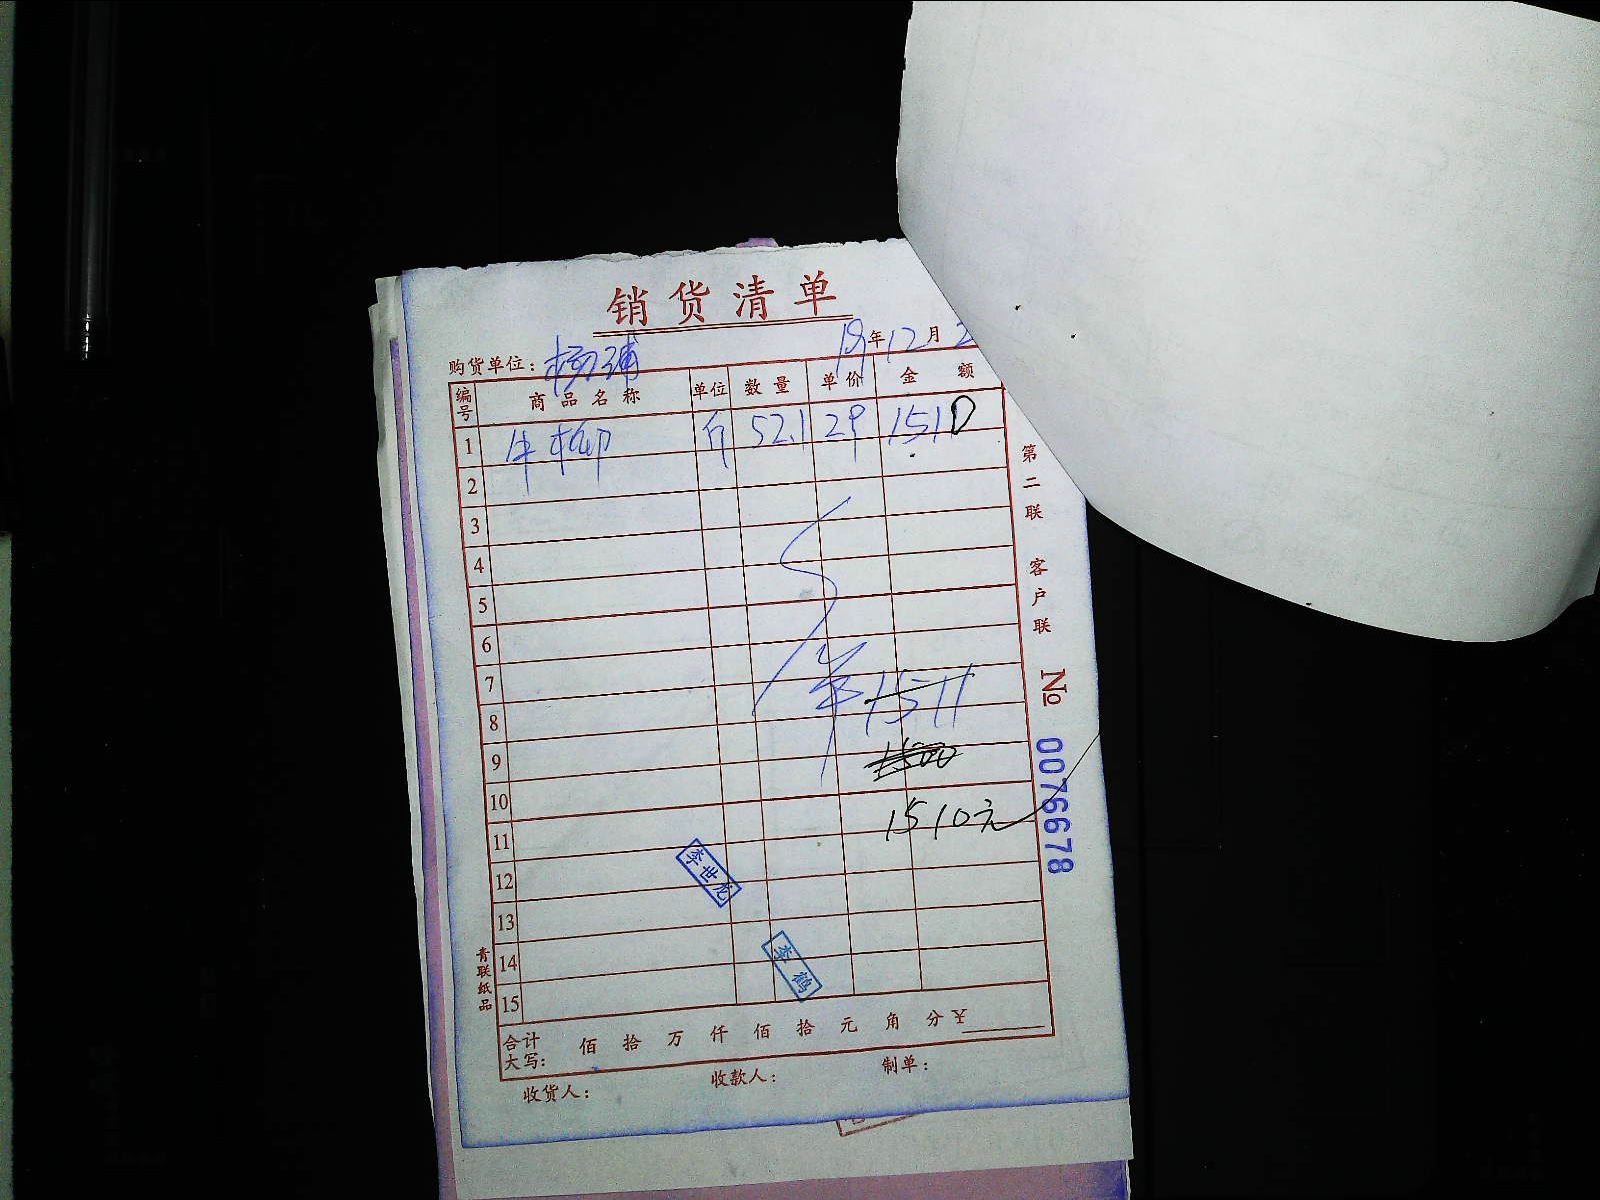 销货清单
购货单位：杨浦 19年12月2
编号 商品名称 单位 数量 单价 金额
1 牛柳 斤 52.1 29 1510
2
3
4
5
6
7
8 1511
9 1500
10
11 1510元
12 李世龙
13
14 李鹤
15
合计大写： 佰 拾 万 仟 佰 拾 元 角 分 ¥
收货人： 收款人： 制单：
第二联 客户联
№ 0076678
青联纸品